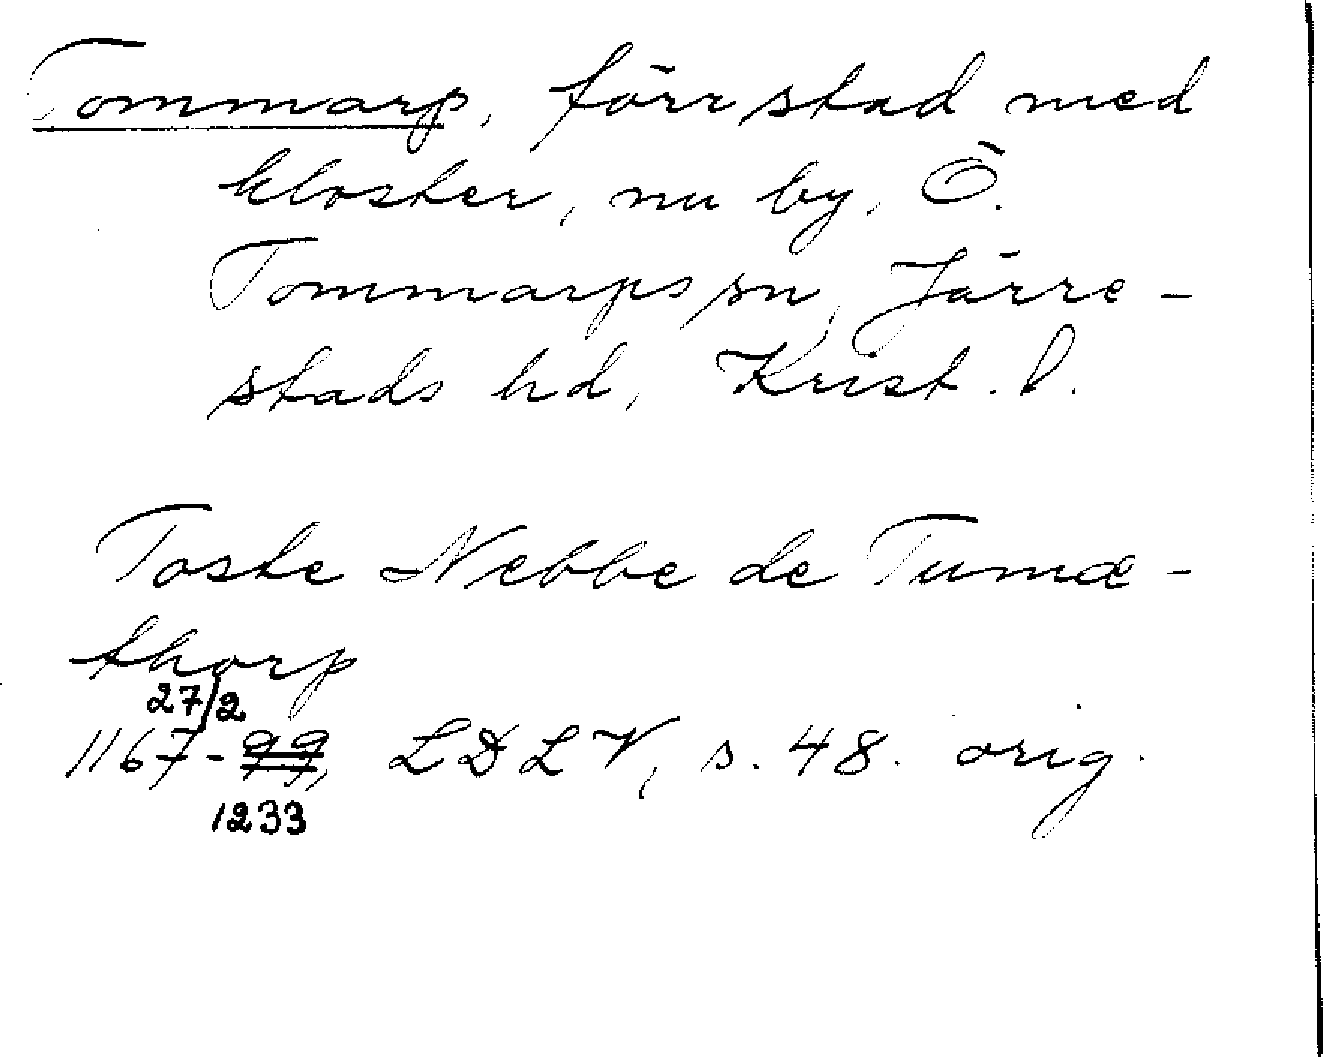 Tommarp, förr stad med
kloster, nu by, Ö.
Tommarps sn, Järre-
stads hd, Krist. l.
Toste Nebbe de Tumæ-
thorp
27/2
1167-99, LDLV, s. 48. orig.
1233